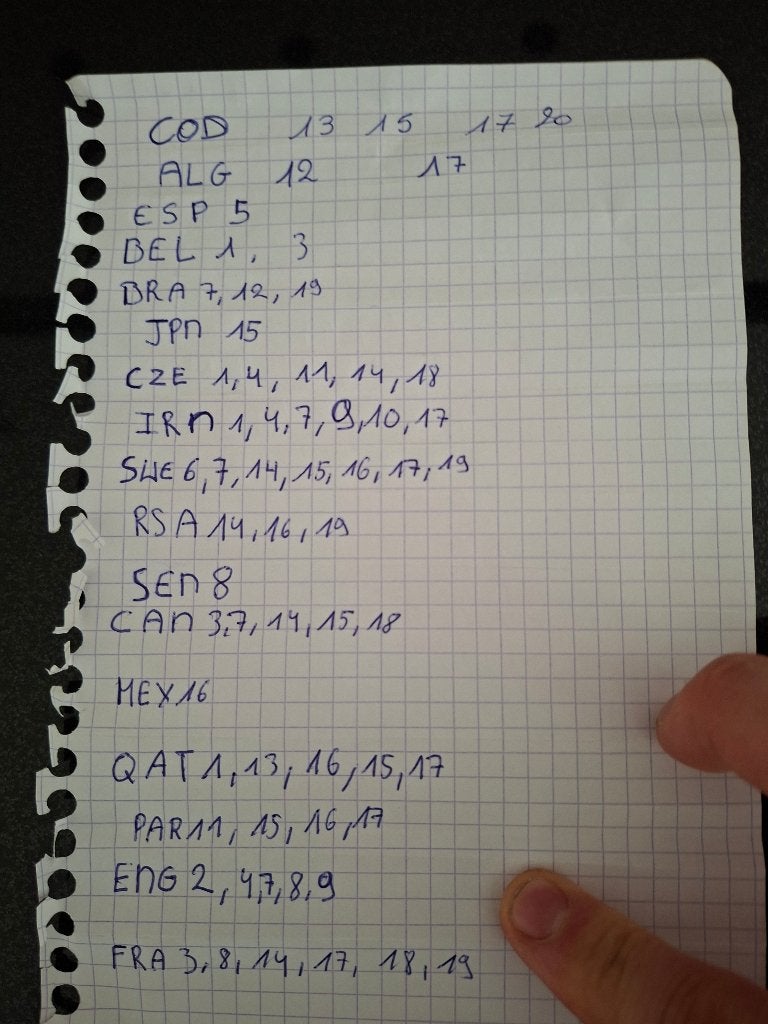 COD 13 15 17 20
ALG 12 17
ESP 5
BEL 1, 3
BRA 7, 12, 19
JPN 15
CZE 1, 4, 11, 14, 18
IRN 1, 4, 7, 9, 10, 17
SWE 6, 7, 14, 15, 16, 17, 19
RSA 14, 16, 19
SEN 8
CAN 3, 7, 14, 15, 18
MEX 16
QAT 1, 13, 16, 15, 17
PAR 11, 15, 16, 17
ENG 2, 4, 7, 8, 9
FRA 3, 8, 14, 17, 18, 19